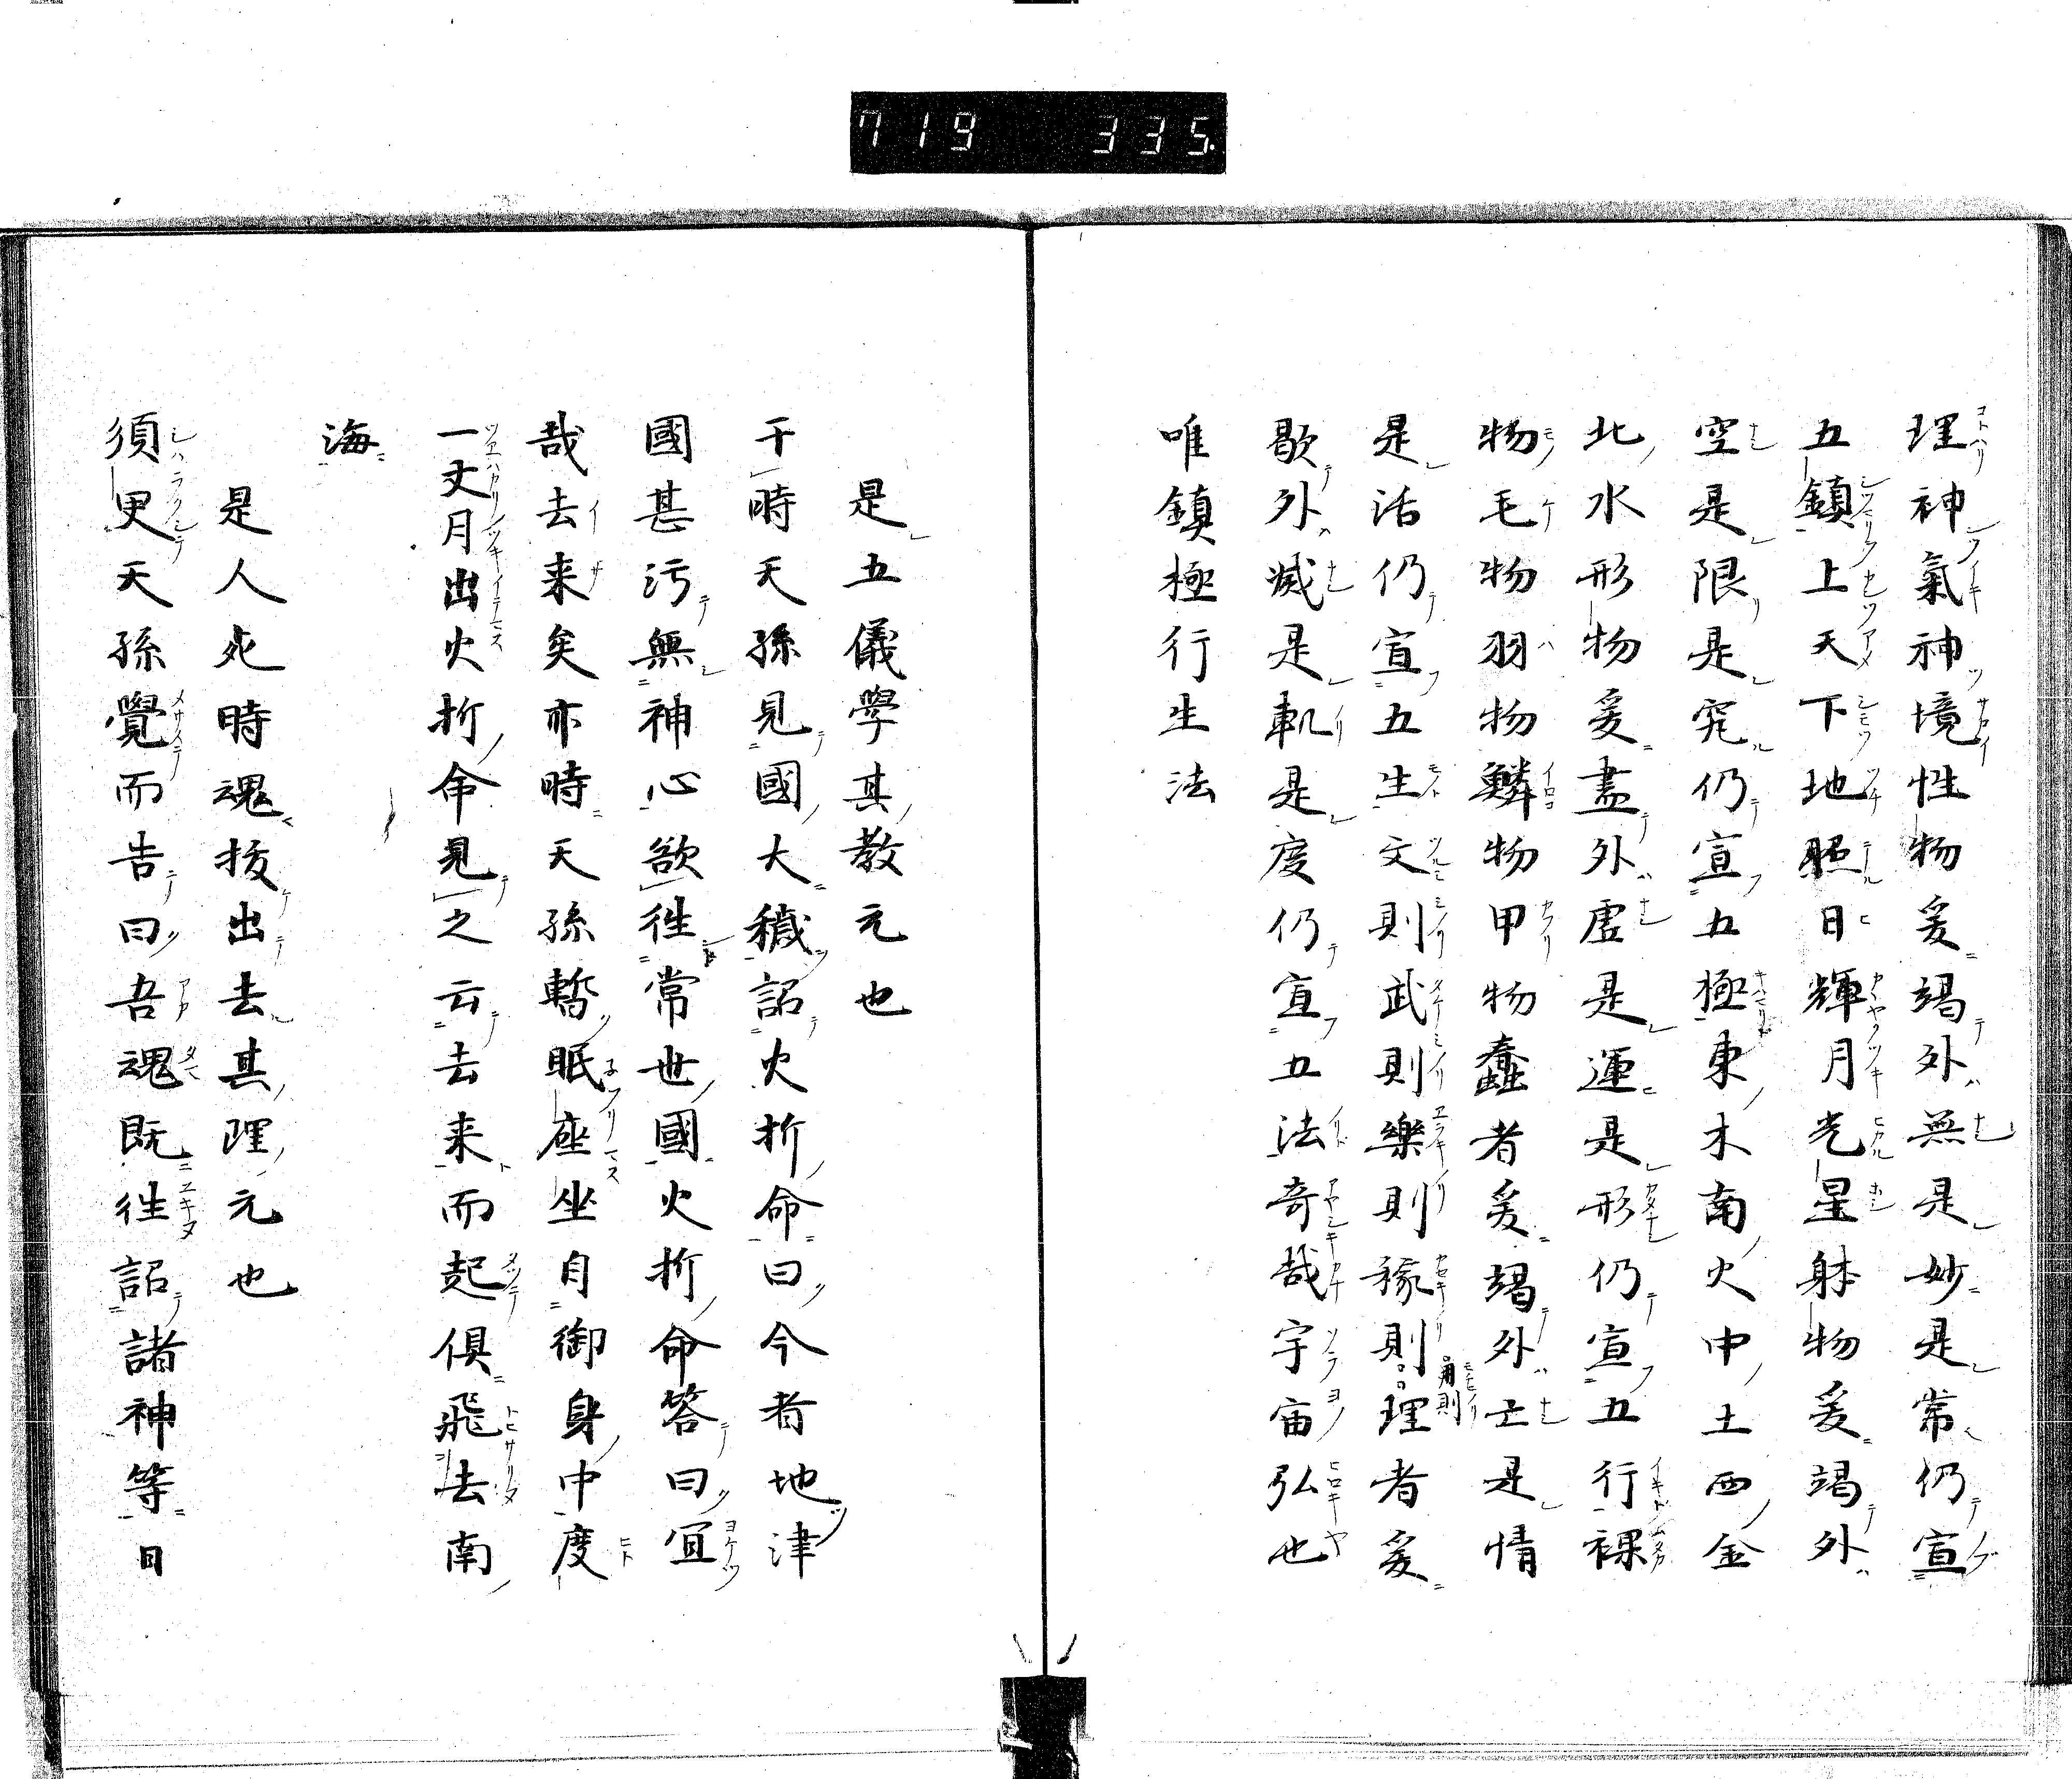 719 335
理神氣神境性物爰竭外無是妙是常仍宣
五鎮上天下地照日輝月光星躰物爰竭外
空是限是究仍宣五極東木南火中土西金
北水形物爰盡外虛是運是形仍宣五行裸
物毛物羽物鱗物甲物蠢者爰竭外亡是情
是活仍宣五生文則武則樂則稼則理者爰
用則
歇外滅是軌是度仍宣五法奇哉宇宙弘也
唯鎮極行生法
是五儀學其教元也
于時天孫見國大穢詔火折命曰今者地津
國甚污無神心欲往常世國火折命答曰宜
哉去来矣亦時天孫暫眠座坐自御身中度
一丈月出火折命見之云去来而起倶飛去南
海
是人死時魂拔出去其理元也
須更天孫覺而告曰吾魂既往詔諸神等曰